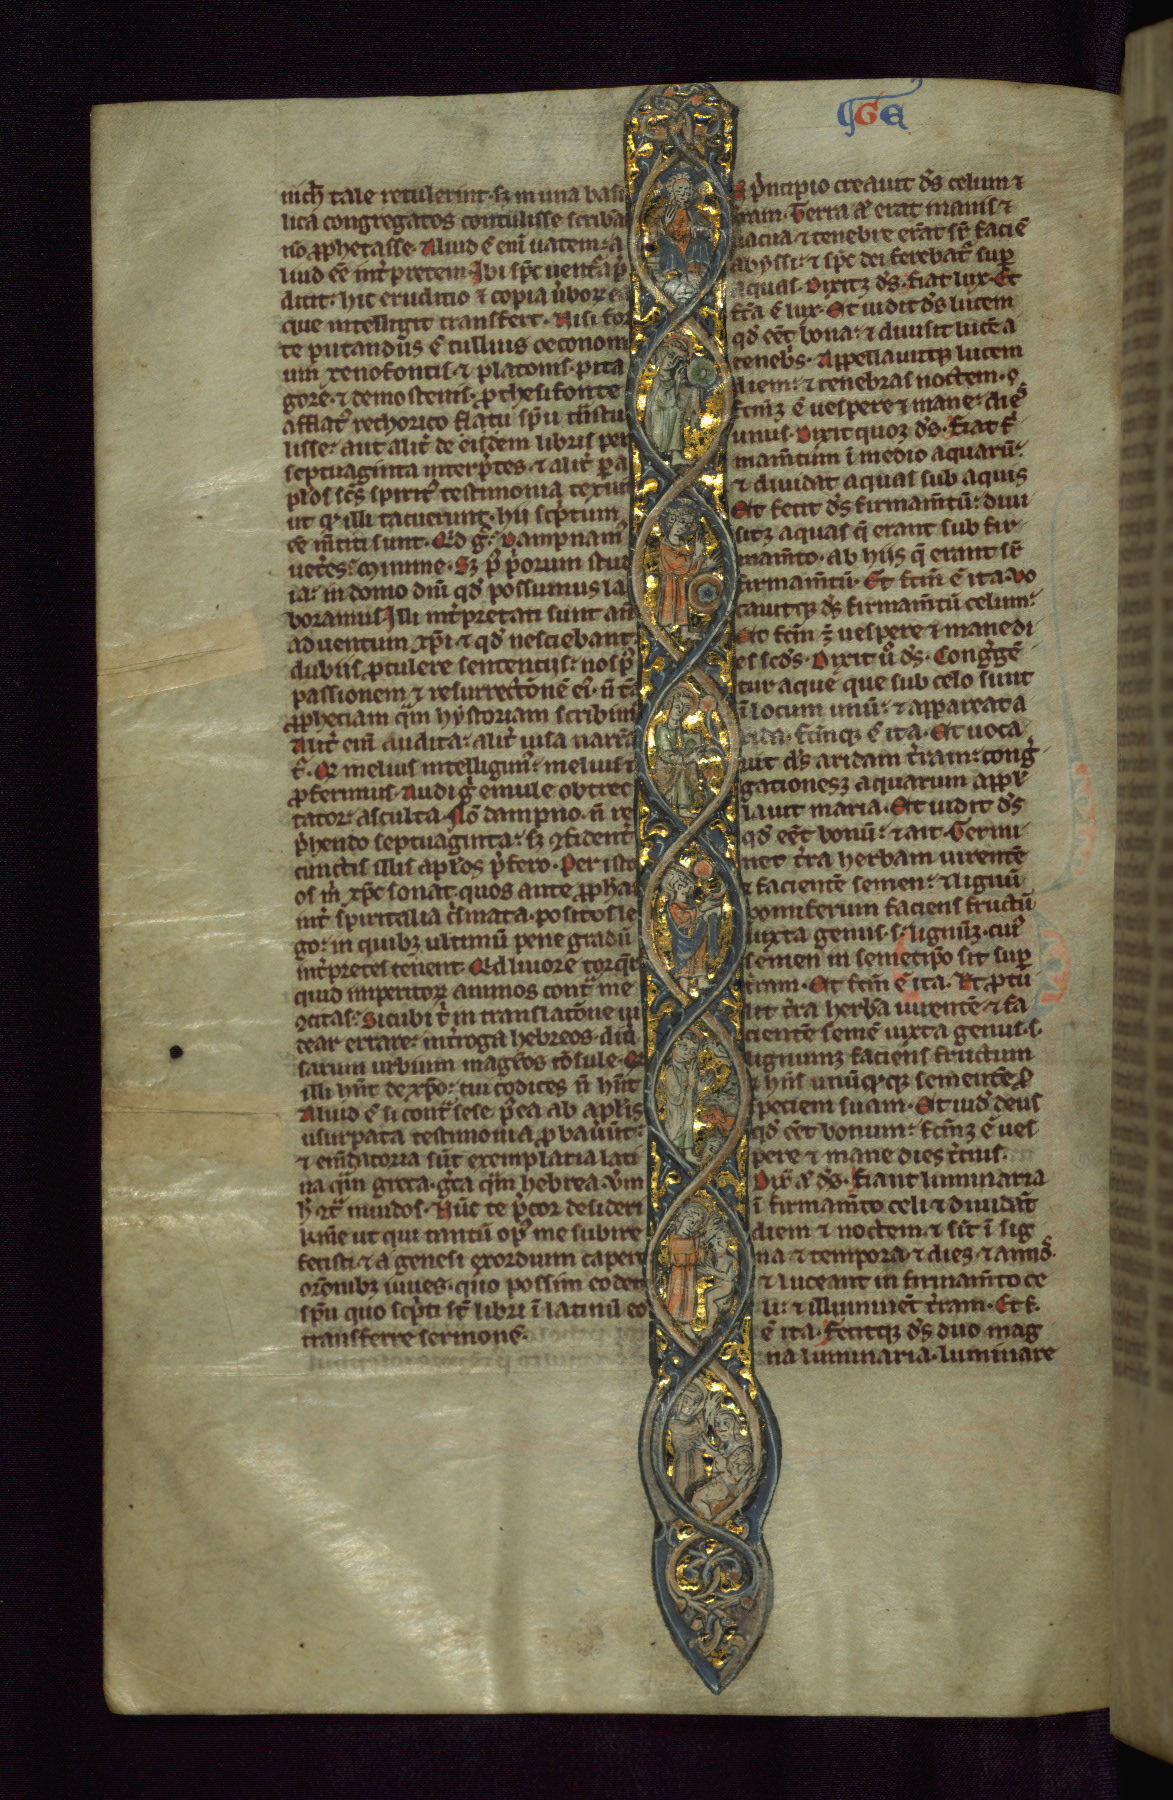 GE
nich tale retulerint. sz in una basi
lica congregatos contulisse scriba
no ꝓphetasse. Aliud ē eni uatem: a
liud eē int̄pretem. Ibi spc uent̄a p̄
dicit: hic eruditio ⁊ copia ūboꝝ ea
que intelligit transfert. Nisi for
te putandus ē tullius oeconom
um xenofontis. ⁊ platonis. pita
gore. ⁊ demostenis. ꝓ thesifonte
afflat᾽ rethorico flatu spū tn̄stu
lisse: aut alit᾽ de eisdem libris per
septuaginta interp̄tes. ⁊ alit᾽ ꝑ a
plos scs spirit᾽ testimonia texuit
ut qꝫ illi tacuerunt. hii scptum
eē m̄titi sunt. Qid g᾽: Dampnam᾽
ueteres: Minime. Sꝫ p᾽ p̄orum stud
ia: in domo dni qd possumus la
boramus. Illi int̄pretati sunt an̄
aduentum xp̄i. ⁊ qd nesciebant:
dubiis ꝓtulere sententiis: nos p᾽
passionem ⁊ resurrectōnē ei᾽. n̄ tā
ꝓphetiam qm̄ hystoriam scribim᾽
Alit᾽ eni audita: alit᾽ uisa narrā
t᾽. Qd melius intelligim᾽: melius ⁊
ꝓferimus. Audi g᾽ emule obtrec
tator: asculta. Nō dampno. n̄ re
p̄hendo septuaginta: sꝫ ɔfident᾽
cunctis illis aplos p̄fero. Per isto
os m̄ xpc sonat. quos ante ꝓphas
int᾽ spiritalia crismata. positos le
go: in quibꝫ ultimū pene gradū
int̄pretes tenent. Qid liuore torqr̄
quid imperitoꝝ animos cont᾽ me
ɔcitas: Sicubi t᾽ in translatōne ui
tear errare: int̄roga hebreos. diu
sarum urbium magr̄os cōsule. Qd
illi hn̄t de xp̄o: tui codices n̄ hn̄t
Aliud ē si cont᾽ sese p̄ ea ab aplis
usurpata testimonia ꝓbauūt:
⁊ em̄datoria sūt exemplaria lati
na qm̄ greca. gca qm̄ hebrea. Uꝫm
h᾽ ɔt᾽ inuidos. Nūc te p̄cor desideri
kme ut qui tantū op᾽ me subire
fecisti. ⁊ a genesi exordium capere
orōnibꝫ iuues. quo possim eodem
spū quo scpti st̄ libri ī latinū eo
transferre sermonē.
p̄ncipio creauit ds celum ⁊
t̄ram. Terra aū erat inanis ⁊
uacua. ⁊ tenebre erāt sr̄ faciē
abyssi: ⁊ spc dei ferebat᾽ sup
aquas. Dixitqꝫ ds. Fiat lux. Et
fc̄a ē lux. Et uidit ds lucem
qd eēt bona: ⁊ diuisit lucē a
tenebs. Appellauitqꝫ lucem
diem: ⁊ tenebras noctem.
Fcm̄qꝫ ē uespere ⁊ mane: dies
unus. Dixit quoqꝫ ds. Fiat fir
mam̄tum ī medio aquarū:
⁊ diuidat aquas sub aquis
Et fecit ds firmam̄tū: diui
sitqꝫ aquas q̄ erant sub fir
mam̄to. ab hiis q̄ erant sr̄
firmam̄tū. Et fcm̄ ē ita. Uo
cauitqꝫ ds firmam̄tū celum:
Et fcm̄ ꝫ uespere ⁊ mane di
es scds. Dixit ū ds. Congrege
tur aque que sub celo sunt
ī locum unū: ⁊ appareat a
rida. fcm̄qꝫ ē ita. Et uoca
uit ds aridam t̄ram: cong᾽
gationesqꝫ aquarum appel
lauit maria. Et uidit ds
qd eēt bonū: ⁊ ait. Germi
net t̄ra herbam uirentē
⁊ facientē semen: ⁊ lignū
pomiferum faciens fructū
iuxta genus s. lignūqꝫ cui᾽
semen in semetip̄o sit sup
t̄ram. Et fcm̄ ē ita. Et ꝓtu
lit t̄ra herbā uirentē ⁊ fa
cientē semē iuxta genus s.
lignumqꝫ faciens fructum
⁊ hn̄s unūqꝫqꝫ sementē
speciem suam. Et uid᾽ deus
qd eēt bonum: fcm̄qꝫ ē ues
pere ⁊ mane dies t̄cius.
Dix᾽ aū ds. Fiant luminaria
ī firmam̄to celi ⁊ diuidāt
diem ⁊ noctem. ⁊ sīt ī sig
na ⁊ tempora. ⁊ dies. ⁊ annos.
⁊ luceant in firmam̄to ce
li: ⁊ illuminēt t̄ram. Et f.
ē ita. Fecitqꝫ ds duo mag
na luminaria. luminare